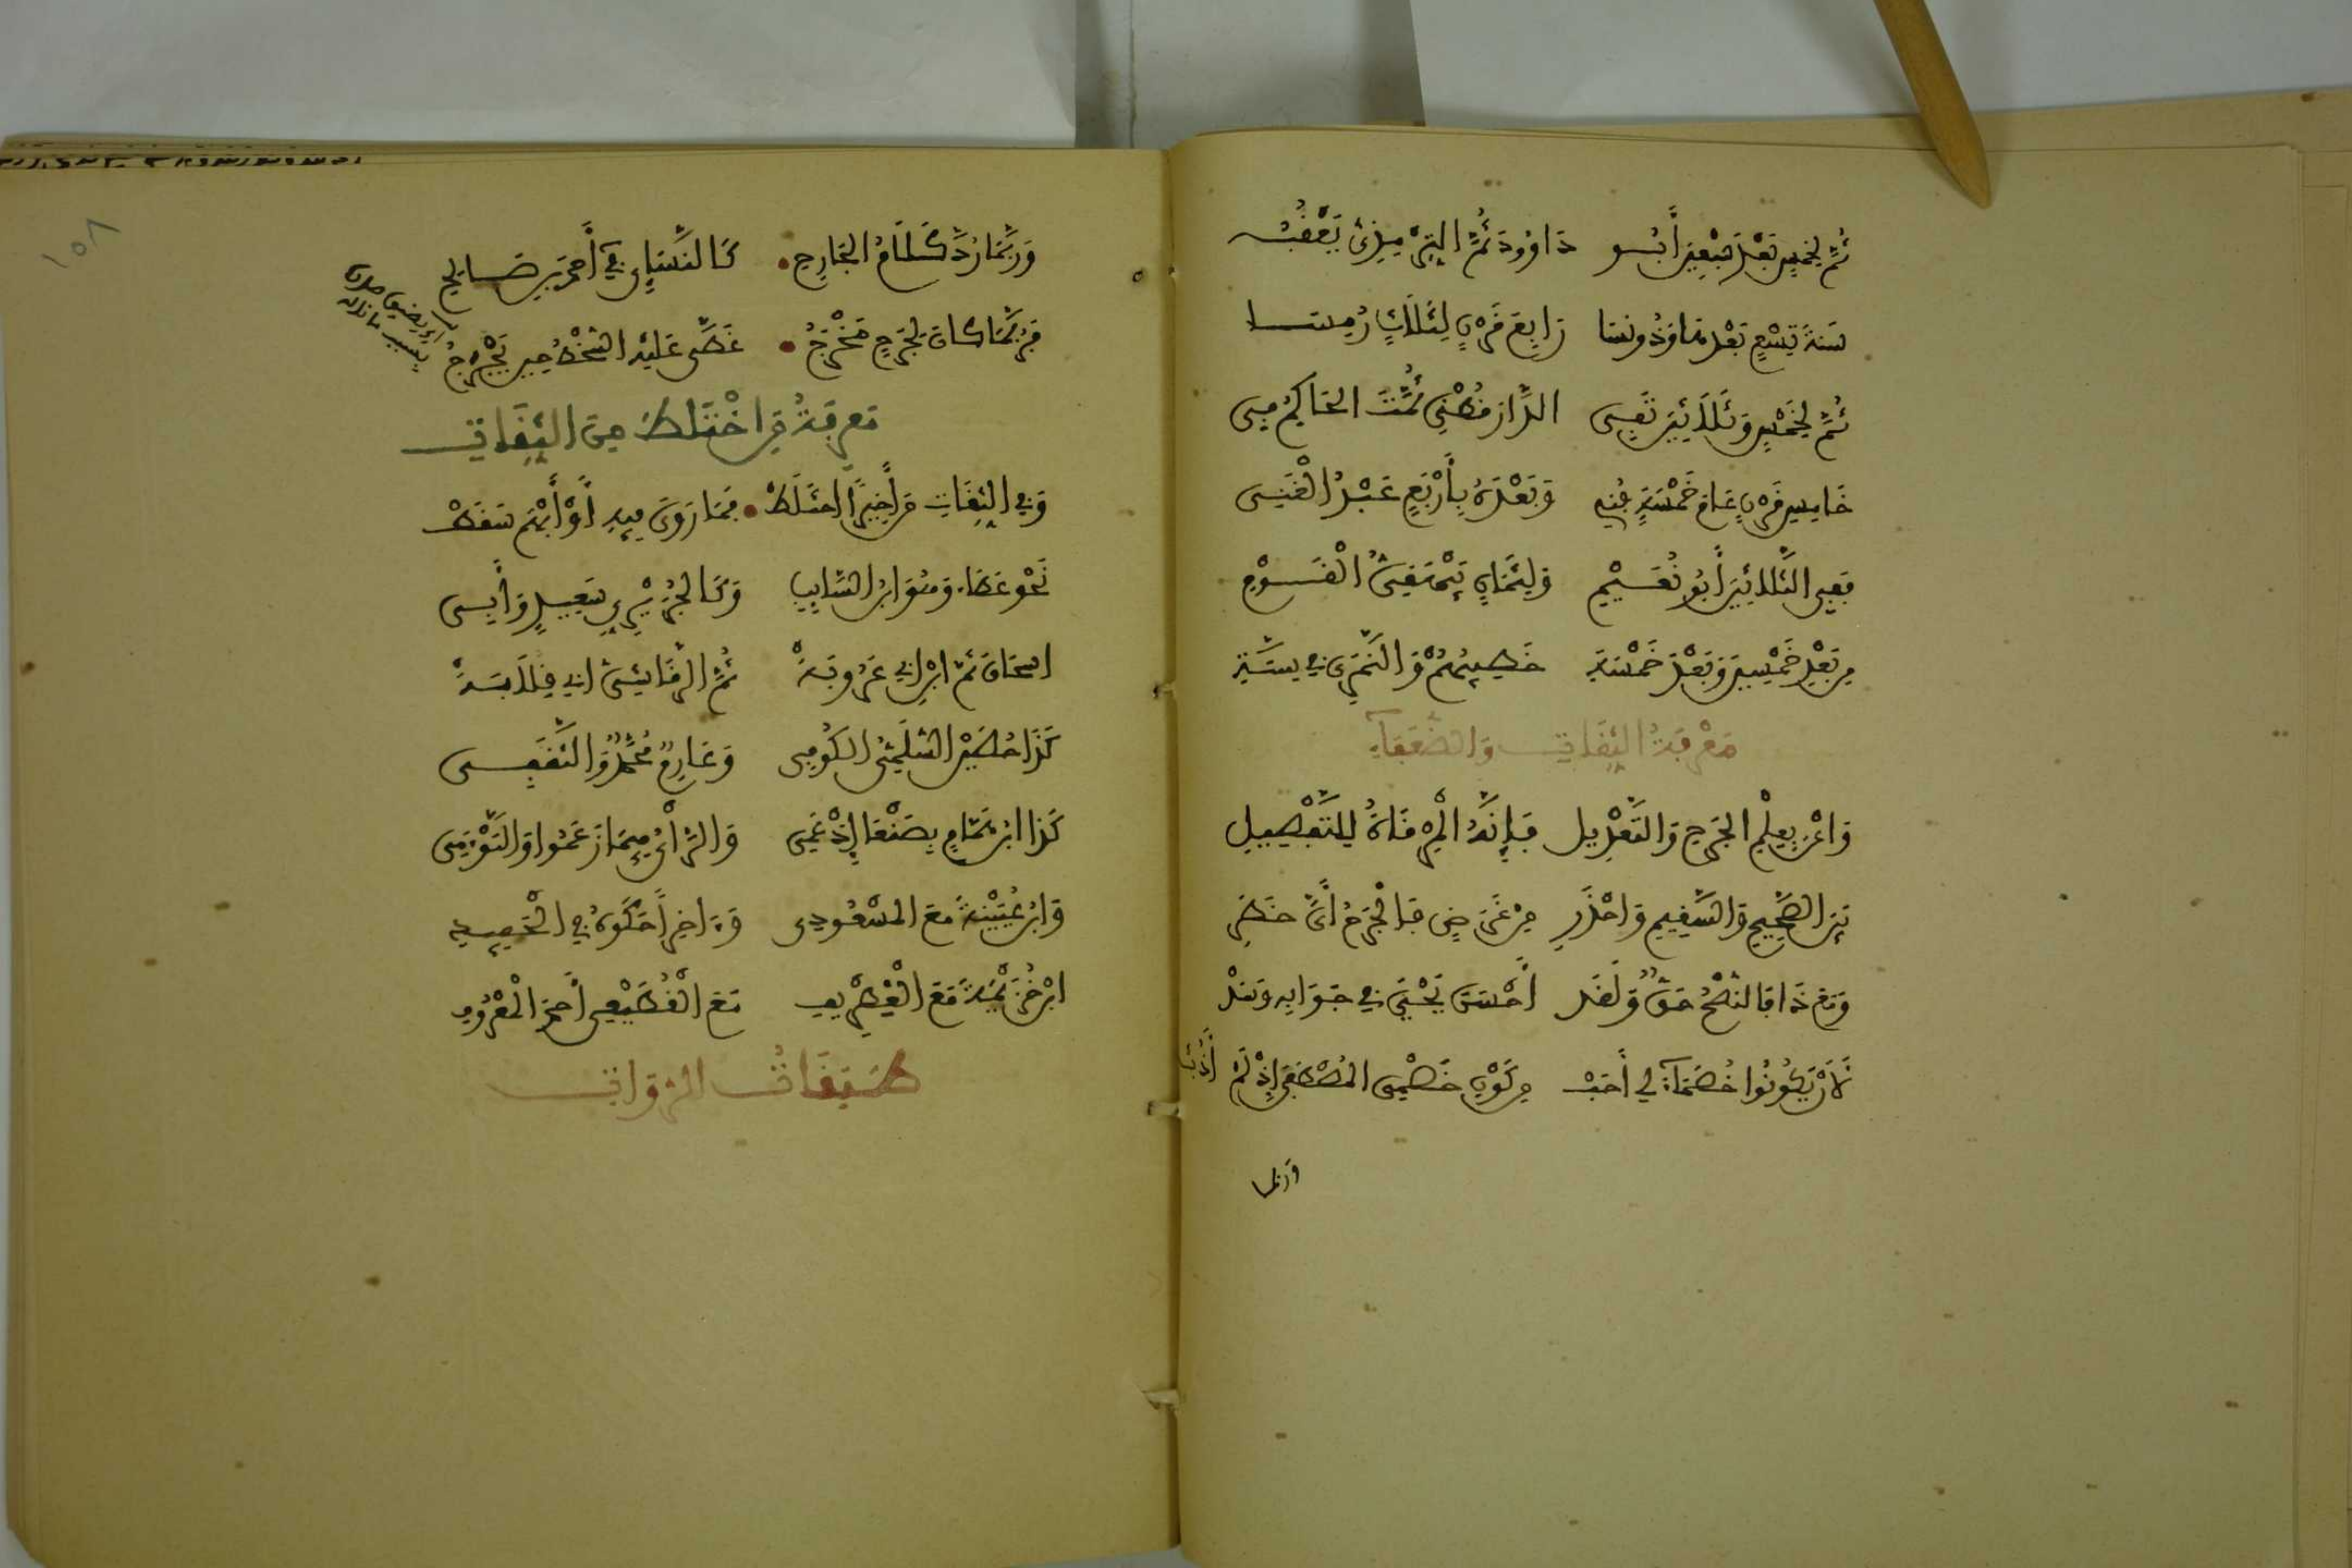 ثُمَّ لِخَمْسٍ بَعْدَ سَبْعِينَ أَبُو دَاوُودَ ثُمَّ التِّرْمِذِيُّ يَعْقُبُ
سَنَةَ تِسْعٍ بَعْدَهَا وَذُو نَسَا رَابِعَ قَرْنٍ لِثَلَاثٍ رُمِسَا
ثُمَّ لِخَمْسٍ وَثَمَانِينَ تَفِي الدَّارَقُطْنِي ثُمَّتَ الحَاكِمُ فِي
خَامِسِ قَرْنٍ عَامَ خَمْسَةٍ فَنِي وَبَعْدَهُ بِأَرْبَعٍ عَبْدُ الْغَنِي
فَفِي الثَّلَاثِينَ أَبُو نُعَيْمِ وَلِثَمَانٍ بَيْهَقِيُّ الْقَوْمِ
مِنْ بَعْدِ خَمْسِينَ وَبَعْدَ خَمْسَةِ خَطِيبُهُمْ وَالنَّمَرِي فِي سَنَةِ
مَعْرِفَةُ الثِّقَاتِ وَالضُّعَفَاءِ
وَاعْنَ بِعِلْمِ الجَرْحِ وَالتَّعْدِيلِ فَإِنَّهُ الْمِرْقَاةُ لِلتَّفْصِيلِ
بَيْنَ الصَّحِيحِ وَالسَّقِيمِ وَاحْذَرِ مِنْ غَرَضٍ فَالْجَرْحُ أَيُّ خَطَرِ
وَمَعَ ذَا فَالنُّصْحُ حَقٌّ وَلَقَدْ أَحْسَنَ يَحْيَى فِي جَوَابِهِ وَسَدْ
لَأَنْ يَكُونُوا خُصَمَاءَ لِي أَحَبْ مِنْ كَوْنِ خَصْمِي المُصْطَفَى إِذْ لَمْ أَذُبْ
وربما
وَرُبَّمَا رُدَّ كَلَامُ الجَارِحِ كَالنَّسَائِي فِي أَحْمَدَ بْنِ صَالِحِ
فَرُبَّمَا كَانَ لِجَرْحٍ مَخْرَجُ غَطَّى عَلَيْهِ السُّخْطُ حِينَ يُحْرَجُ
مَعْرِفَةُ مَنِ اخْتَلَطَ مِنَ الثِّقَاتِ
وَفِي الثِّقَاتِ مَنْ أَخِيرًا اخْتَلَطْ فَمَا رَوَى فِيهِ أَوْ أُبْهِمَ سَقَطْ
نَحْوُ عَطَاءٍ وَهُوَ ابْنُ السَّائِبِ وَكَالجُرَيْرِيِّ سَعِيدٍ وَأَبِي
اسحَاقَ ثُمَّ ابْنِ أَبِي عَرُوبَةْ ثُمَّ الرَّقَاشِيِّ أَبِي قِلَابَةْ
كَذَا حُصَيْنُ السُّلَمِيُّ الكُوفِي وَعَارِمٌ مُحَمَّدٌ وَالثَّقَفِي
كَذَا ابْنُ هَمَّامٍ بِصَنْعَا إِذْ عَمِي وَالرَّأْيُ فِيمَا زَعَمُوا وَالتَّوْأَمِي
وَابْنُ عُيَيْنَةَ مَعَ المَسْعُودِي وَءَاخِرًا حَكَوْهُ فِي الْحَفِيدِ
ابْنِ خُزَيْمَةَ مَعَ الْغِطْرِيفِي مَعَ الْقَطِيعِي أَحْمَدَ الْمَعْرُوفِ
طَبَقَاتُ الرُّوَاةِ